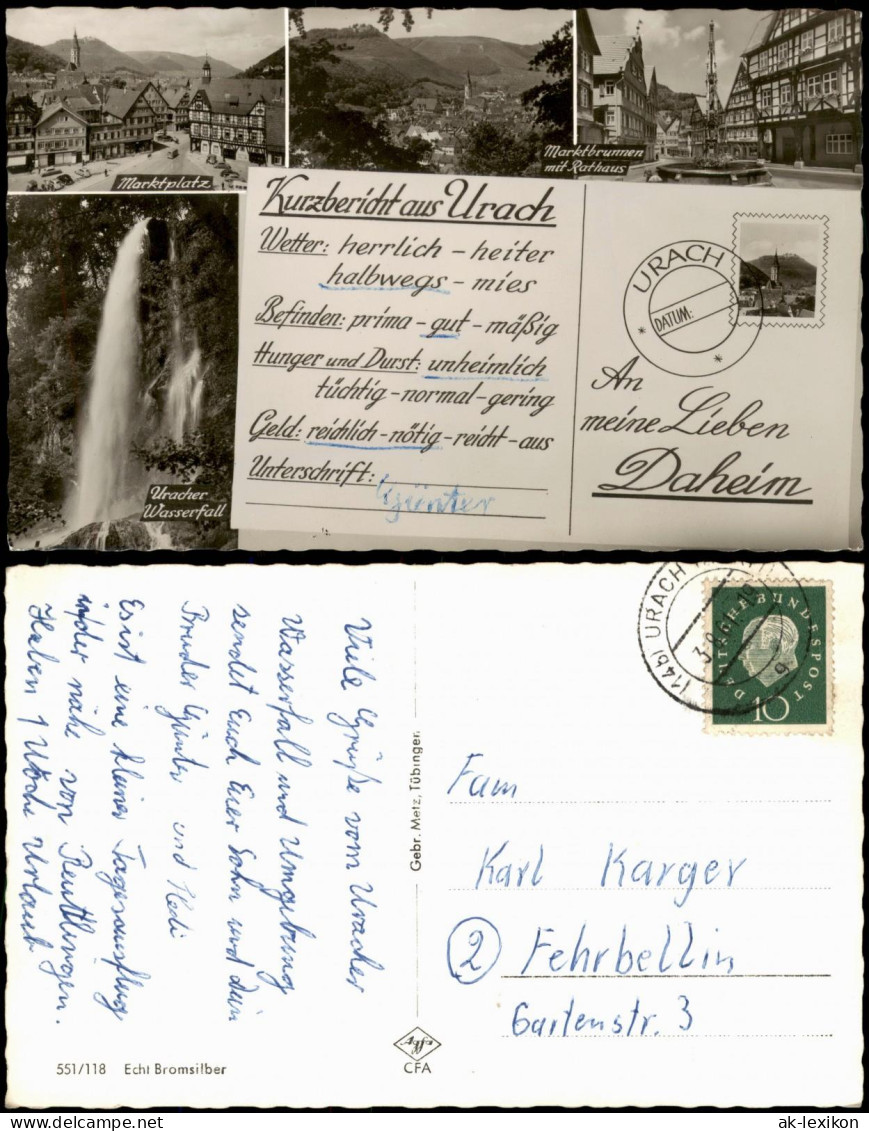 Marktplatz
Marktbrunnen
mit Rathaus
Uracher
Wasserfall
Kurzbericht aus Urach
Wetter: herrlich - heiter
halbwegs - mies
Befinden: prima - gut - mäßig
Hunger und Durst: unheimlich
tüchtig - normal - gering
Geld: reichlich - nötig - reicht - aus
Unterschrift:
Günter
URACH
DATUM:
An
meine Lieben
Daheim
Viele Grüße vom Uracher
Wasserfall und Umgebung
sendet Euch Euer Sohn und dein
Bruder Günter und Hedi
Es ist eine kleiner Tagesausflug
in der nähe von Reutlingen.
Haben 1 Woche Urlaub
Gebr. Metz, Tübingen
(14b) URACH
3.9.61-19
DEUTSCHE BUNDESPOST
10
Fam
Karl Karger
2 Fehrbellin
Gartenstr. 3
551/118 Echt Bromsilber
Agfa
CFA
ak-lexikon